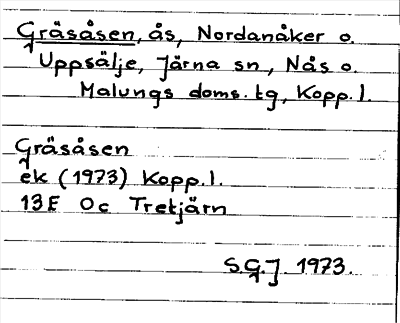 Gräsåsen, ås, Nordanåker o.
Uppsälje, Järna sn, Nås o.
Malungs doms. tg, Kopp. l.
Gräsåsen
ek (1973) Kopp. l.
13E 0c Tretjärn
S.G.J. 1973.